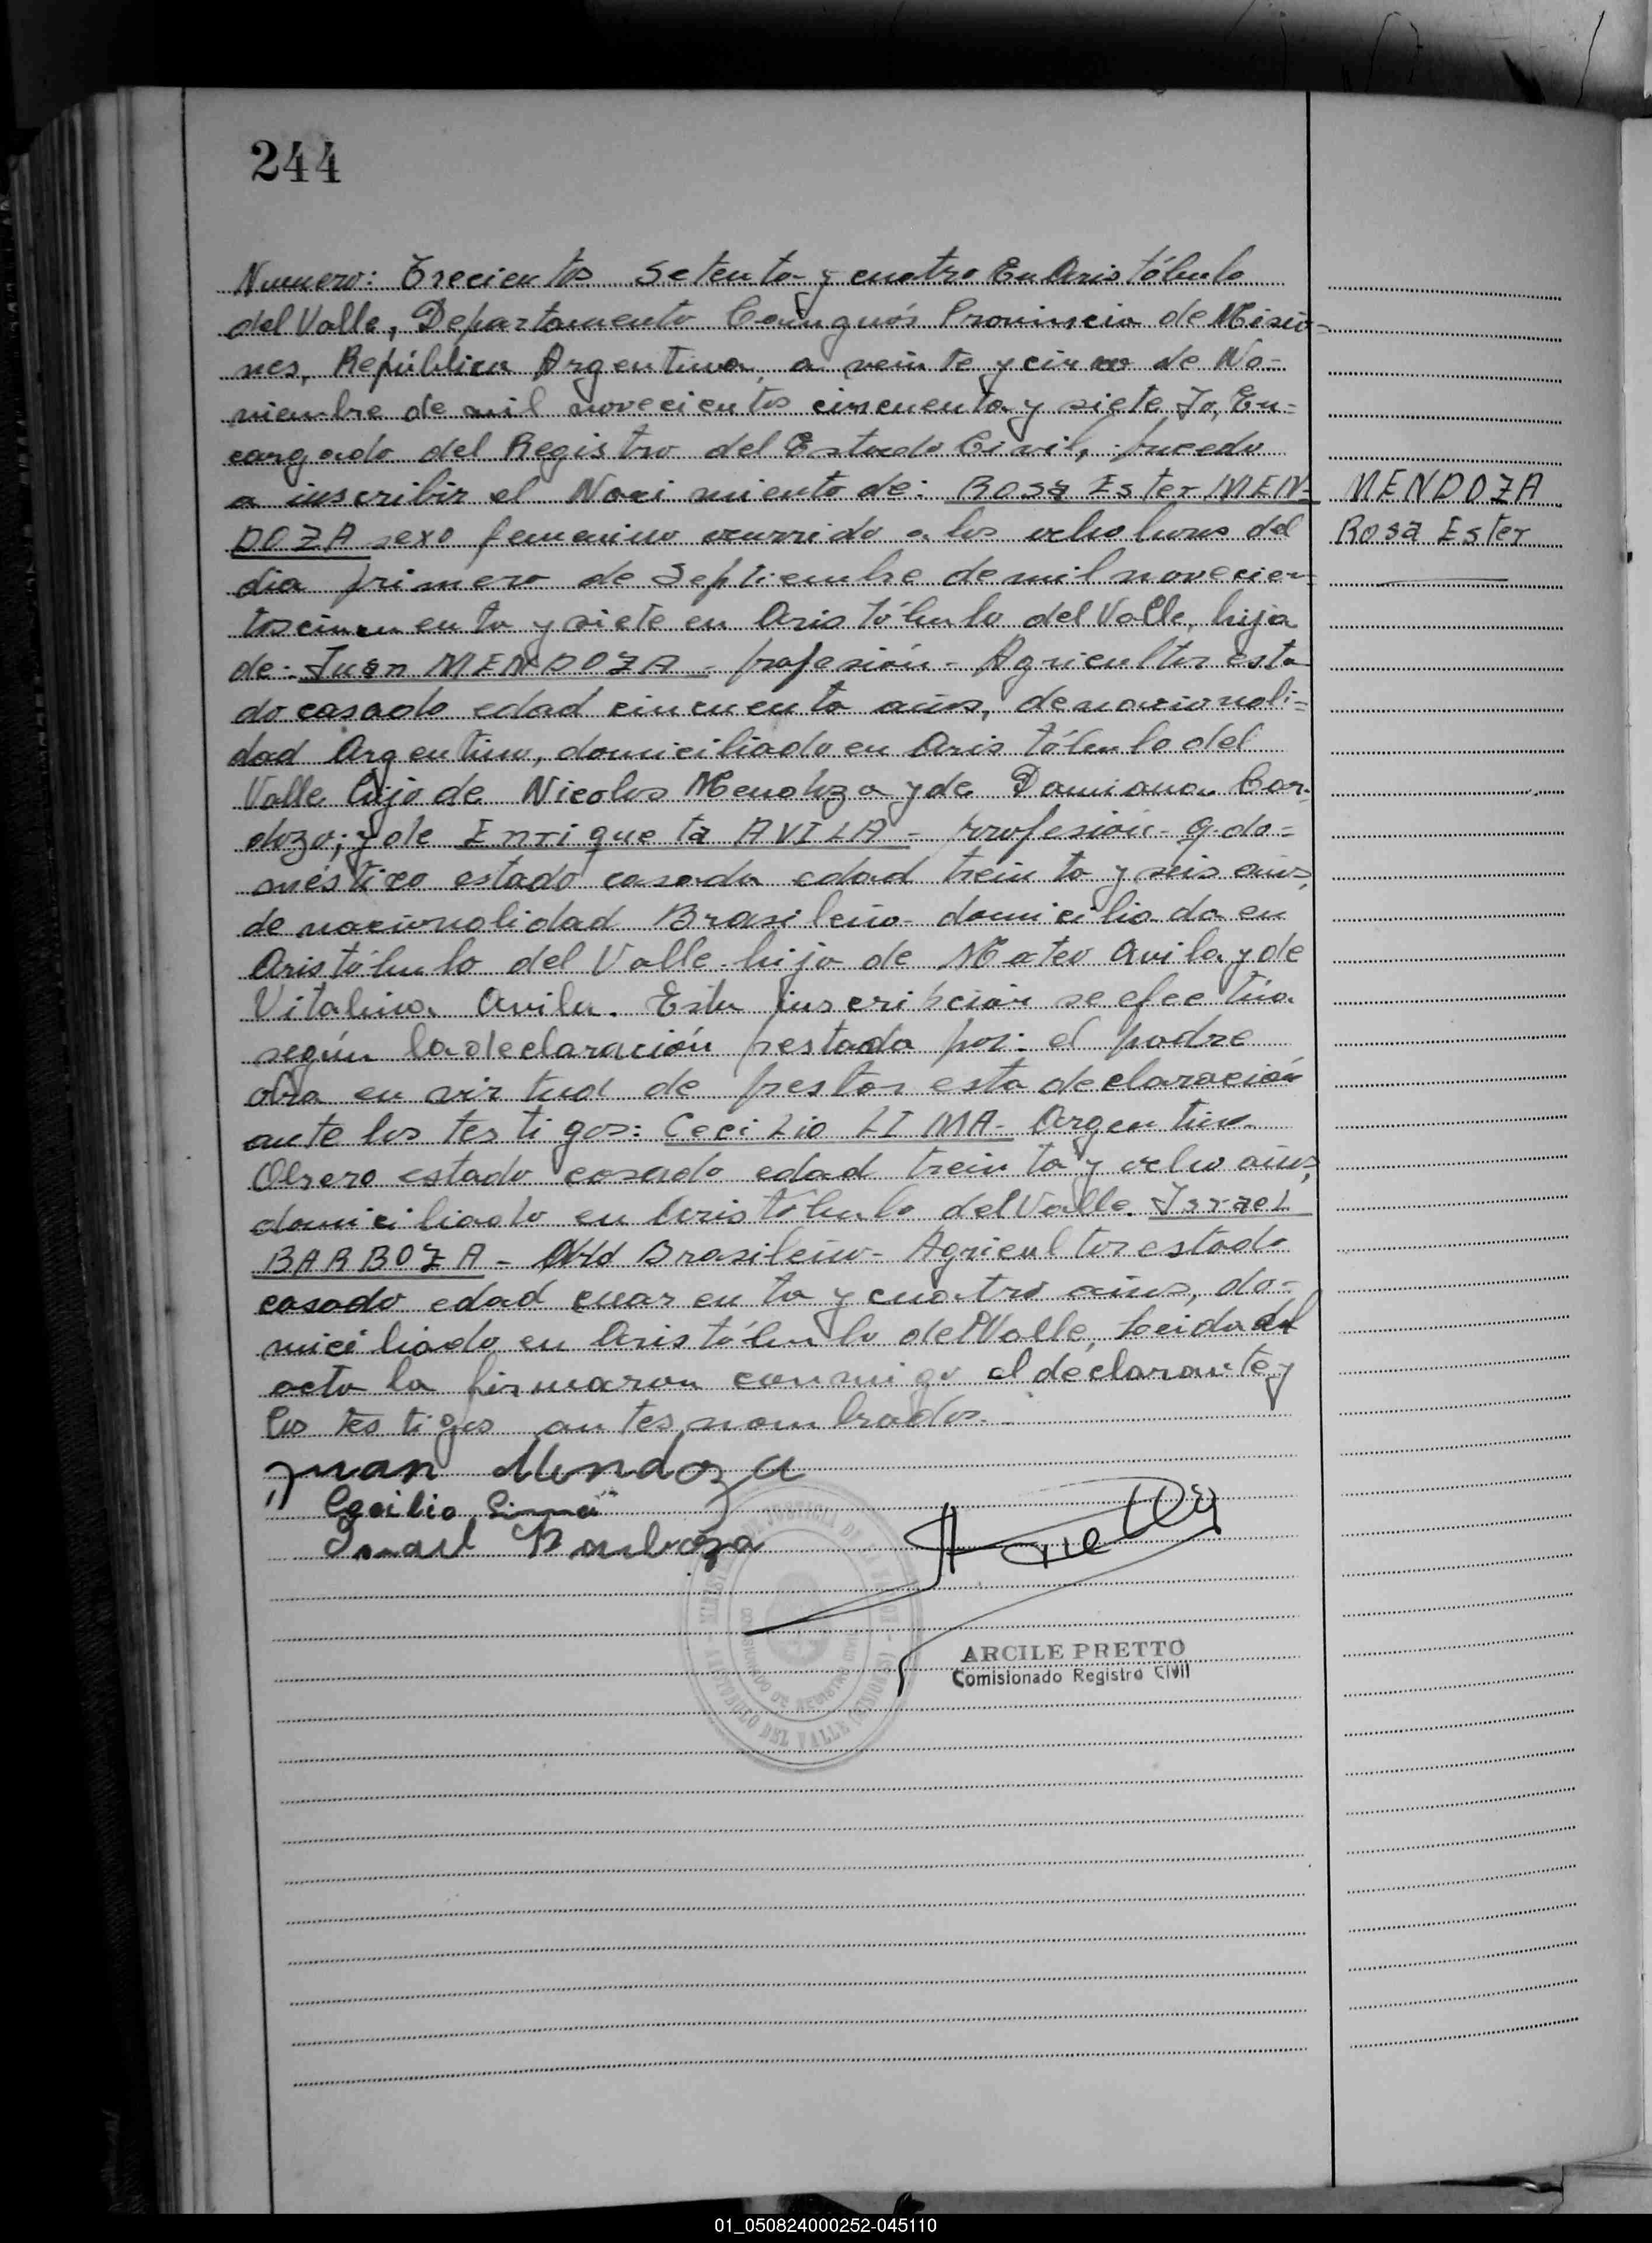 244
Numero: Trecientos Setenta y cuatro En Aristóbulo
del Valle, Departamento Cainguás Provincia de Misio-
nes, República Argentina, a veinte y cinco de No-
viembre de mil novecientos cincuenta y siete Yo, En-
cargado del Registro del Estado Civil, procedo
a inscribir el Nacimiento de: Rosa Ester MEN-
DOZA sexo femenino ocurrido a las ocho horas del
MENDOZA
Rosa Ester
dia primero de Septiembre de mil novecien-
tos cincuenta y siete en Aristóbulo del Valle, hija
de: Juan MENDOZA - profesión - Agricultor esta
do casado edad cincuenta años, de nacionali-
dad Argentino, domiciliado en Aristóbulo del
Valle hijo de Nicolas Mendoza y de Damiana Car-
dozo; y de Enriqueta AVILA - profesión - q. do-
méstico estado casada edad treinta y seis años,
de nacionalidad Brasileña - domiciliada en
Aristóbulo del Valle hija de Mateo Avila y de
Vitalina Avila. Esta inscripción se efectúa
según la declaración prestada por: el padre
obra en virtud de prestar esta declaración
ante los testigos: Cecilio LIMA - Argentino
Obrero estado casado edad treinta y ocho años,
domiciliado en Aristóbulo del Valle. Israel
BARBOZA - Brasileño - Agricultor estado
casado edad cuarenta y cuatro años, do-
miciliado en Aristóbulo del Valle, Leida el
acta la firmaron conmigo el declarante y
los testigos antes nombrados.
Juan Mendoza
Cecilio Lima
Barboza
ARCILE PRETTO
Comisionado Registro Civil
ARISTOBULO DEL VALLE (MISIONES)
01_050824000252-045110